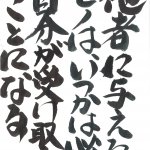 他者に与える
モノはいつかは
自分が受け取
ことになる